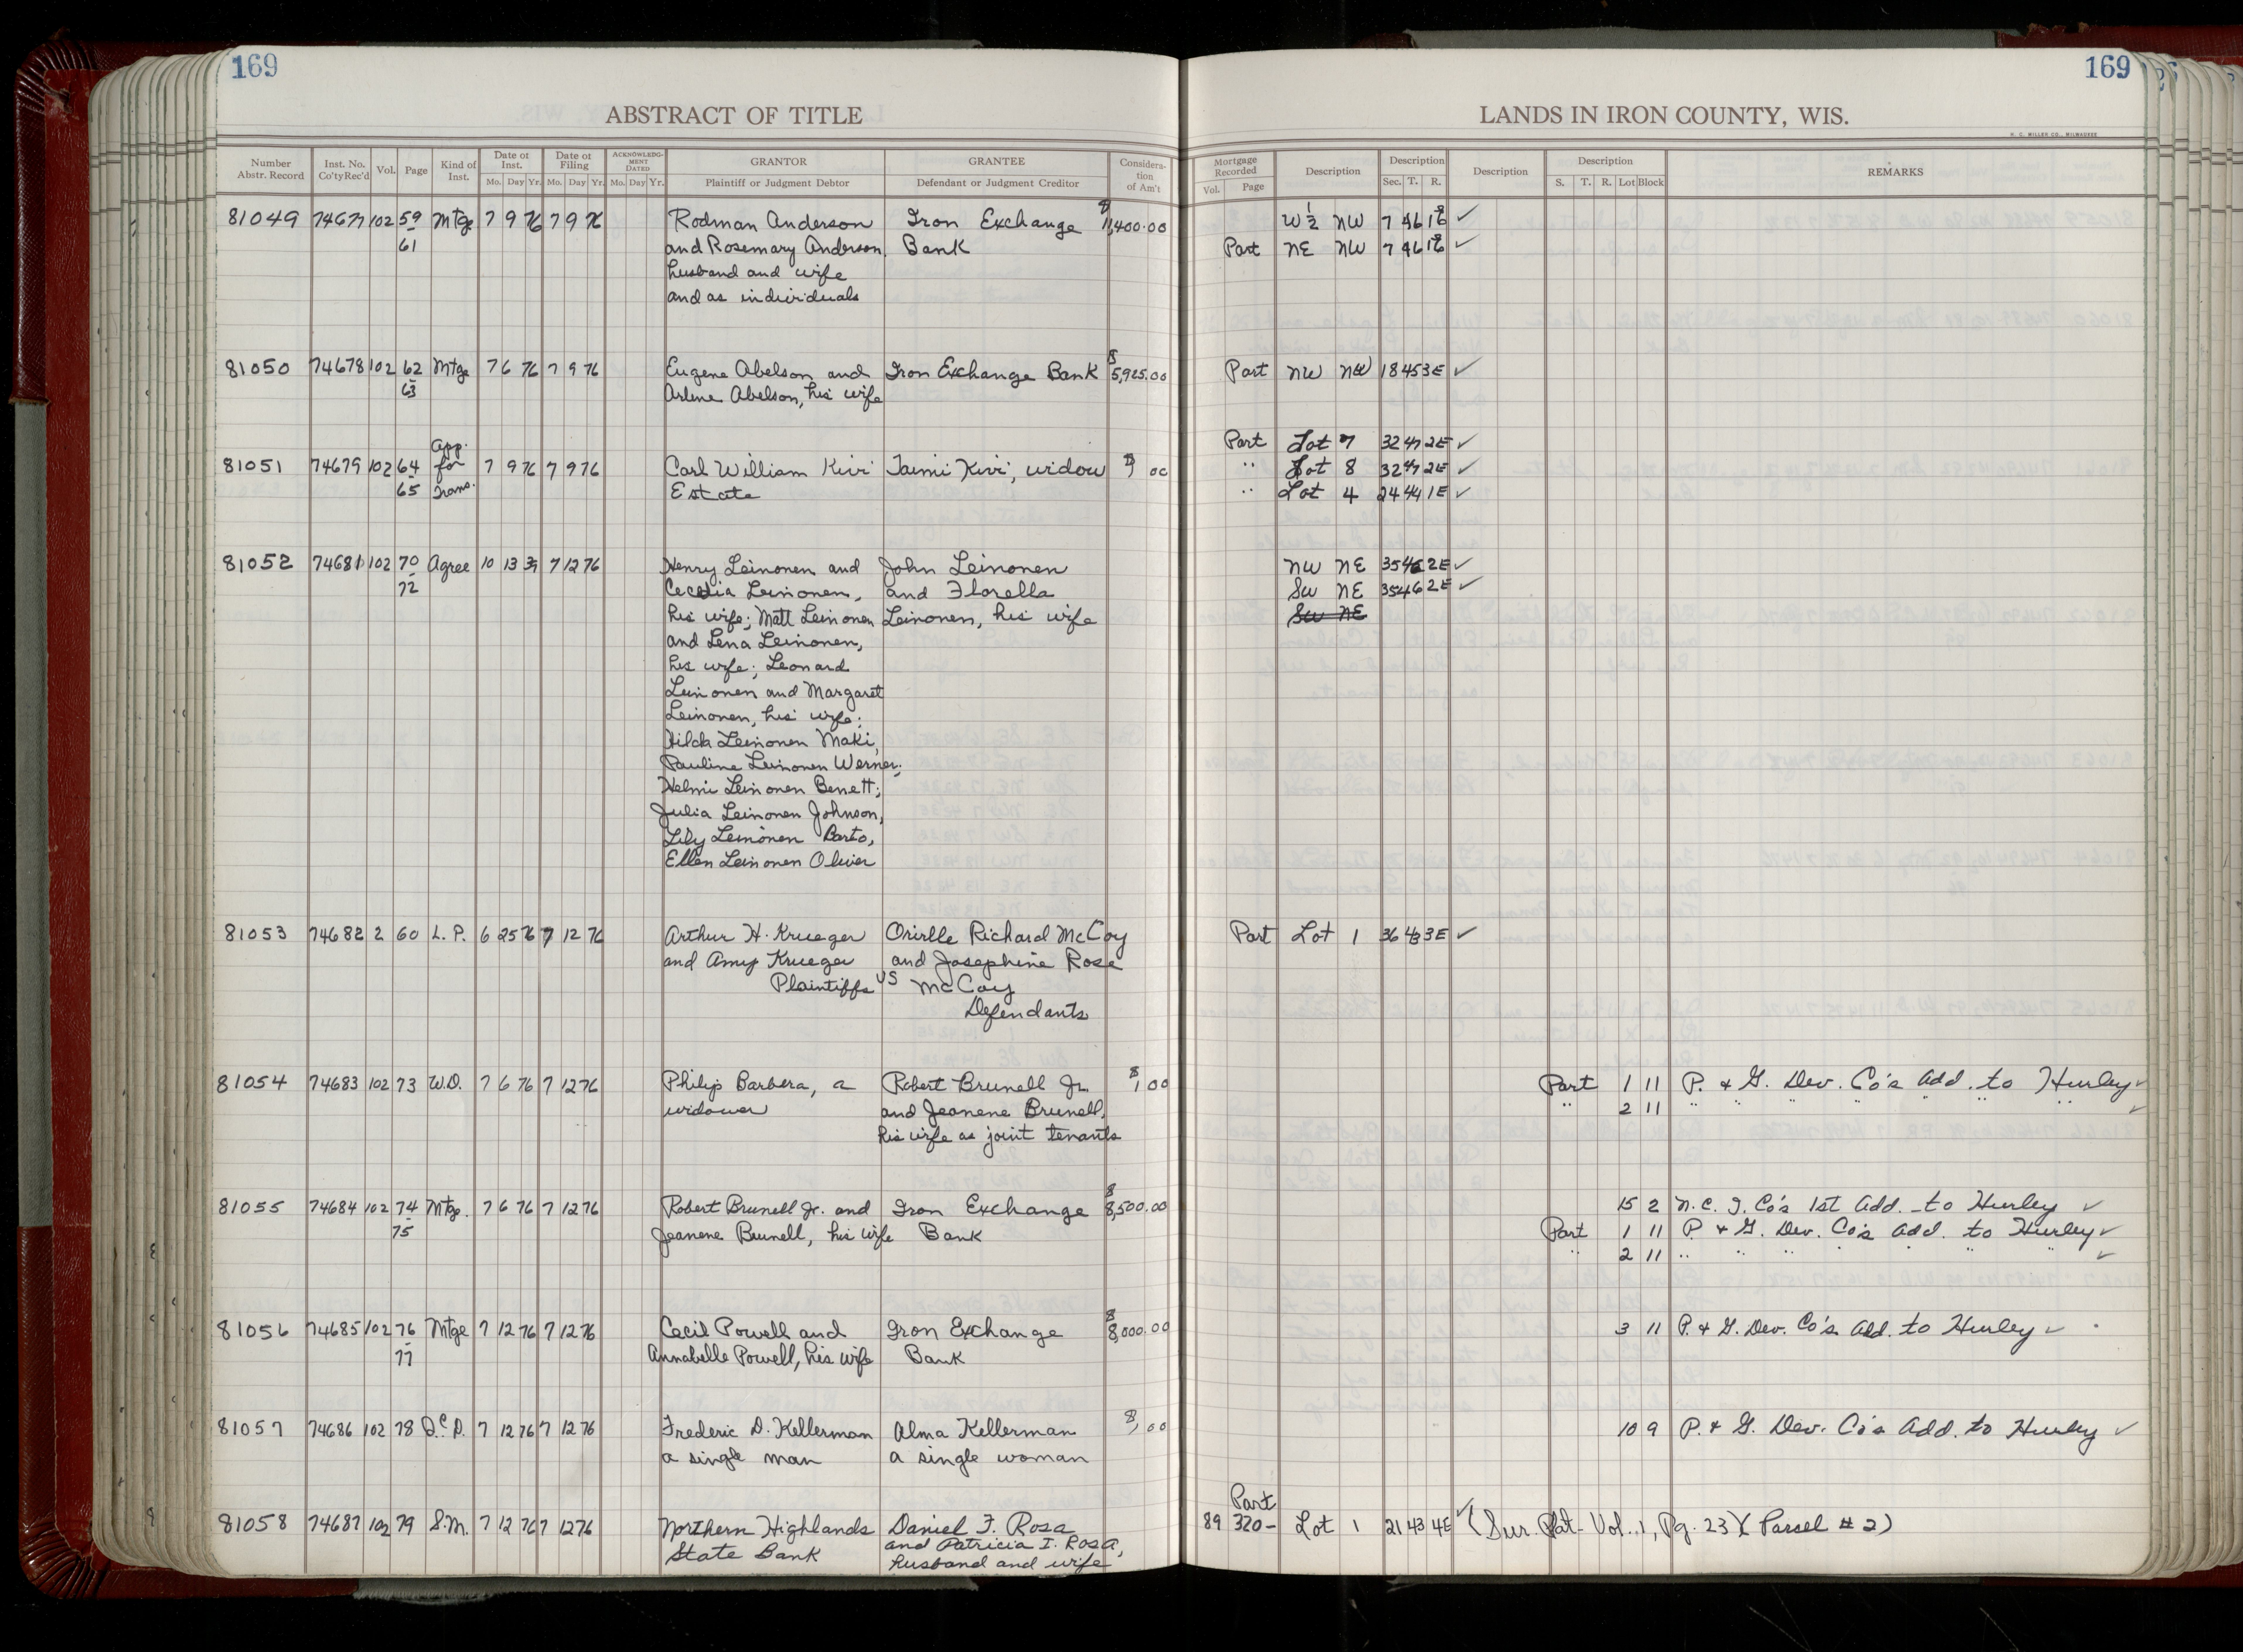 169
169
ABSTRACT OF TITLE
LANDS IN IRON COUNTY, WIS.
H. C. MILLER CO., MILWAUKEE
Number Abstr. Record Inst. No. Co'ty Rec'd Vol. Page Kind of Inst. Date of Inst. Mo. Day Yr. Date of Filing Mo. Day Yr. ACKNOWLEDG-MENT DATED Mo. Day Yr. GRANTOR Plaintiff or Judgment Debtor GRANTEE Defendant or Judgment Creditor Considera-tion of Am't
Mortgage Recorded Vol. Page Description Description Sec. T. R. Description Description S. T. R. Lot Block REMARKS
81049 74677 102 59 Mtge 7 9 76 7 9 76 Rodman Anderson Iron Exchange $ ,400.00 W½ NW 7 46 ✓
61 and Rosemary Anderson, Bank Part NE NW 7 46 ✓
husband and wife
and as individuals
81050 74678 102 62 Mtge 7 6 76 7 9 76 Eugene Abelson and Iron Exchange Bank $5,925.00 Part NW NW 18 45 3E ✓
63 Arlene Abelson, his wife
Part Lot 7 32 47 2E ✓
81051 74679 102 64 App. for Trans. 7 9 76 7 9 76 Carl William Kivi Taimi Kivi, widow $ 00 " Lot 8 32 47 2E ✓
65 Estate " Lot 4 24 44 1E ✓
81052 74681 102 70 Agree 10 13 39 7 12 76 Henry Leinonen and John Leinonen NW NE 35 46 2E ✓
72 Cecelia Leinonen, and Florella SW NE 35 46 2E ✓
his wife; Matt Leinonen Leinonen, his wife SW NE
and Lena Leinonen,
his wife; Leonard
Leinonen and Margaret
Leinonen, his wife;
Hilda Leinonen Maki,
Pauline Leinonen Werner;
Helmi Leinonen Benett;
Julia Leinonen Johnson,
Lily Leinonen Barto,
Ellen Leinonen Olivier
81053 74682 2 60 L. P. 6 25 76 7 12 76 Arthur H. Krueger Orirlle Richard McCoy Part Lot 1 36 43 3E ✓
and Amy Krueger and Josephine Rose
Plaintiffs vs McCoy
Defendants
81054 74683 102 73 W.D. 7 6 76 7 12 76 Philip Barbera, a Robert Brunell Jr. $1.00 Part 1 11 P. & G. Dev. Co's Add. to Hurley ✓
widower and Jeanene Brunell, " 2 11 " " " " " " ✓
his wife as joint tenants
81055 74684 102 74 Mtge. 7 6 76 7 12 76 Robert Brunell Jr. and Iron Exchange $8,500.00 15 2 N. C. I. Co's 1st Add. to Hurley ✓
75 Jeanene Brunell, his wife Bank Part 1 11 P. & G. Dev. Co's Add. to Hurley ✓
" 2 11 " " " " " " ✓
81056 74685 102 76 Mtge 7 12 76 7 12 76 Cecil Powell and Iron Exchange $8,000.00 3 11 P. & G. Dev. Co's Add. to Hurley ✓
77 Annabelle Powell, his wife Bank
81057 74686 102 78 Q.C.D. 7 12 76 7 12 76 Frederic D. Kellerman Alma Kellerman $ 00 10 9 P. & G. Dev. Co's Add. to Hurley ✓
a single man a single woman
Part
81058 74687 102 79 S.M. 7 12 76 7 12 76 Northern Highlands Daniel F. Rosa 89 320- Lot 1 21 43 4E ✓ (Sur. Plat- Vol. 1, Pg. 23) (Parsel # 2)
State Bank and Patricia I. Rosa,
husband and wife